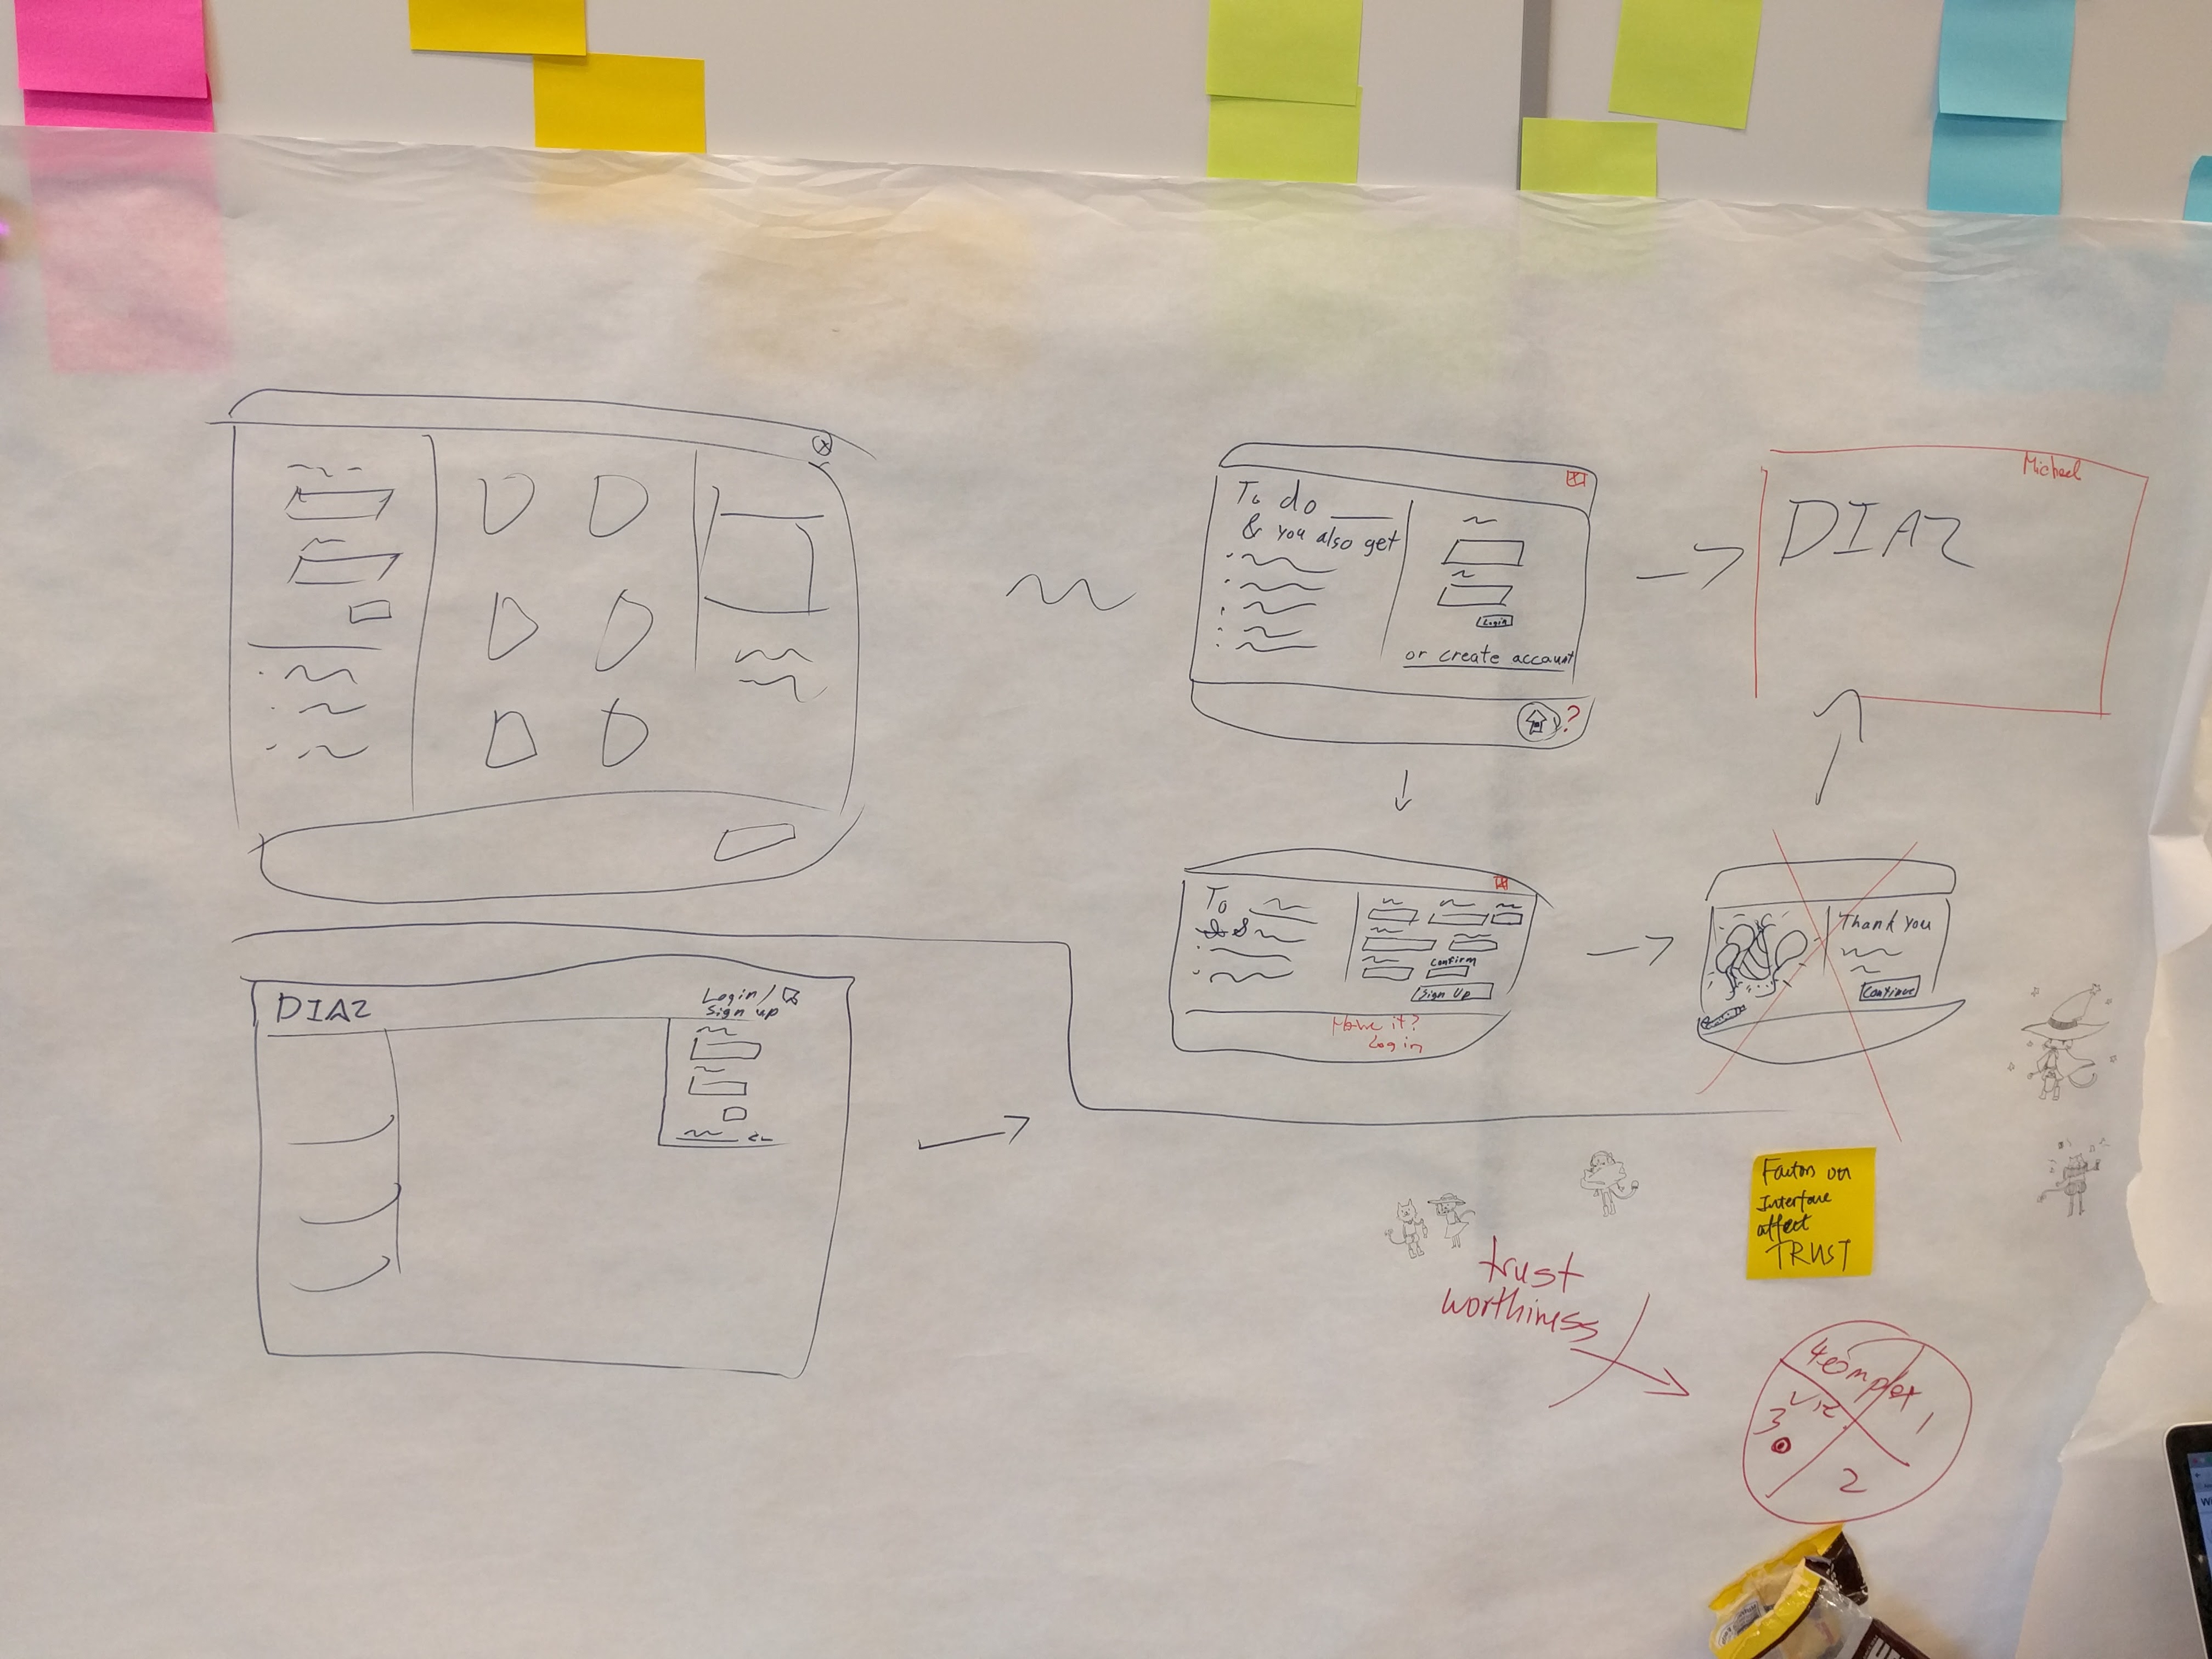 To do
& you also get
Login
or create account
?
Michael
DIAZ
To
Confirm
Sign Up
Have it?
Login
Thank you
Continue
DIAZ
Login /
Sign up
Factors on
Interface
affect
TRUST
trust
worthiness
4 complex
1
3
2